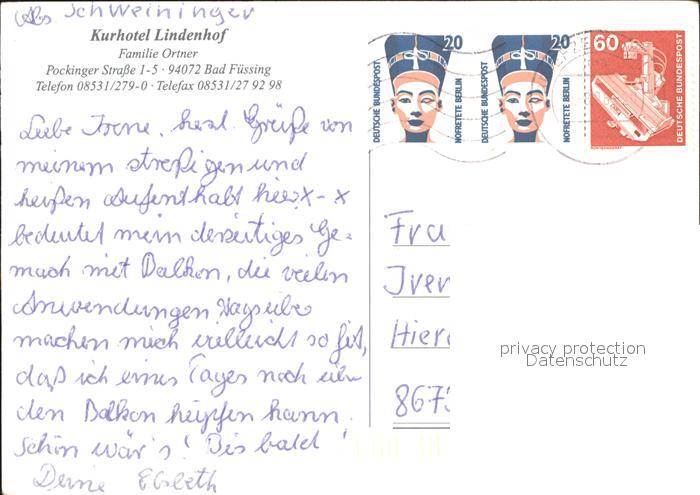 Abs Schweininger
Kurhotel Lindenhof
Familie Ortner
Pockinger Straße 1-5 · 94072 Bad Füssing
Telefon 08531/279-0 · Telefax 08531/27 92 98
Liebe Irene, herzl. Grüße von
meinem streßigen und
heißen Aufenthalt hier X - X
bedeutet mein derzeitiges Ge=
mach mit Balkon, die vielen
Anwendungen tagsüber
machen mich vielleicht so fit,
daß ich eines Tages noch über
den Balkon hüpfen kann.
Schön wär's! Bis bald!
Deine Elsbeth
20
DEUTSCHE BUNDESPOST
NOFRETETE BERLIN
20
DEUTSCHE BUNDESPOST
NOFRETETE BERLIN
60
DEUTSCHE BUNDESPOST
Frau
Iren
Hier
867
privacy protection
Datenschutz